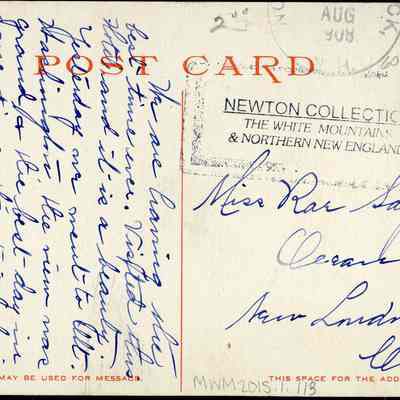 2.00
AUG
908
POST CARD
NEWTON COLLECTIO
THE WHITE MOUNTAINS
& NORTHERN NEW ENGLAND
We are having the
best time ever. Visited this
Hotel and it is a beauty.
Yesterday we went to Mt.
Washington the view was
grand & the best day in
Miss Rae Sa
Ocean
New Lond
MAY BE USED FOR MESSAGE.
THIS SPACE FOR THE ADD
MWM2015.1.113